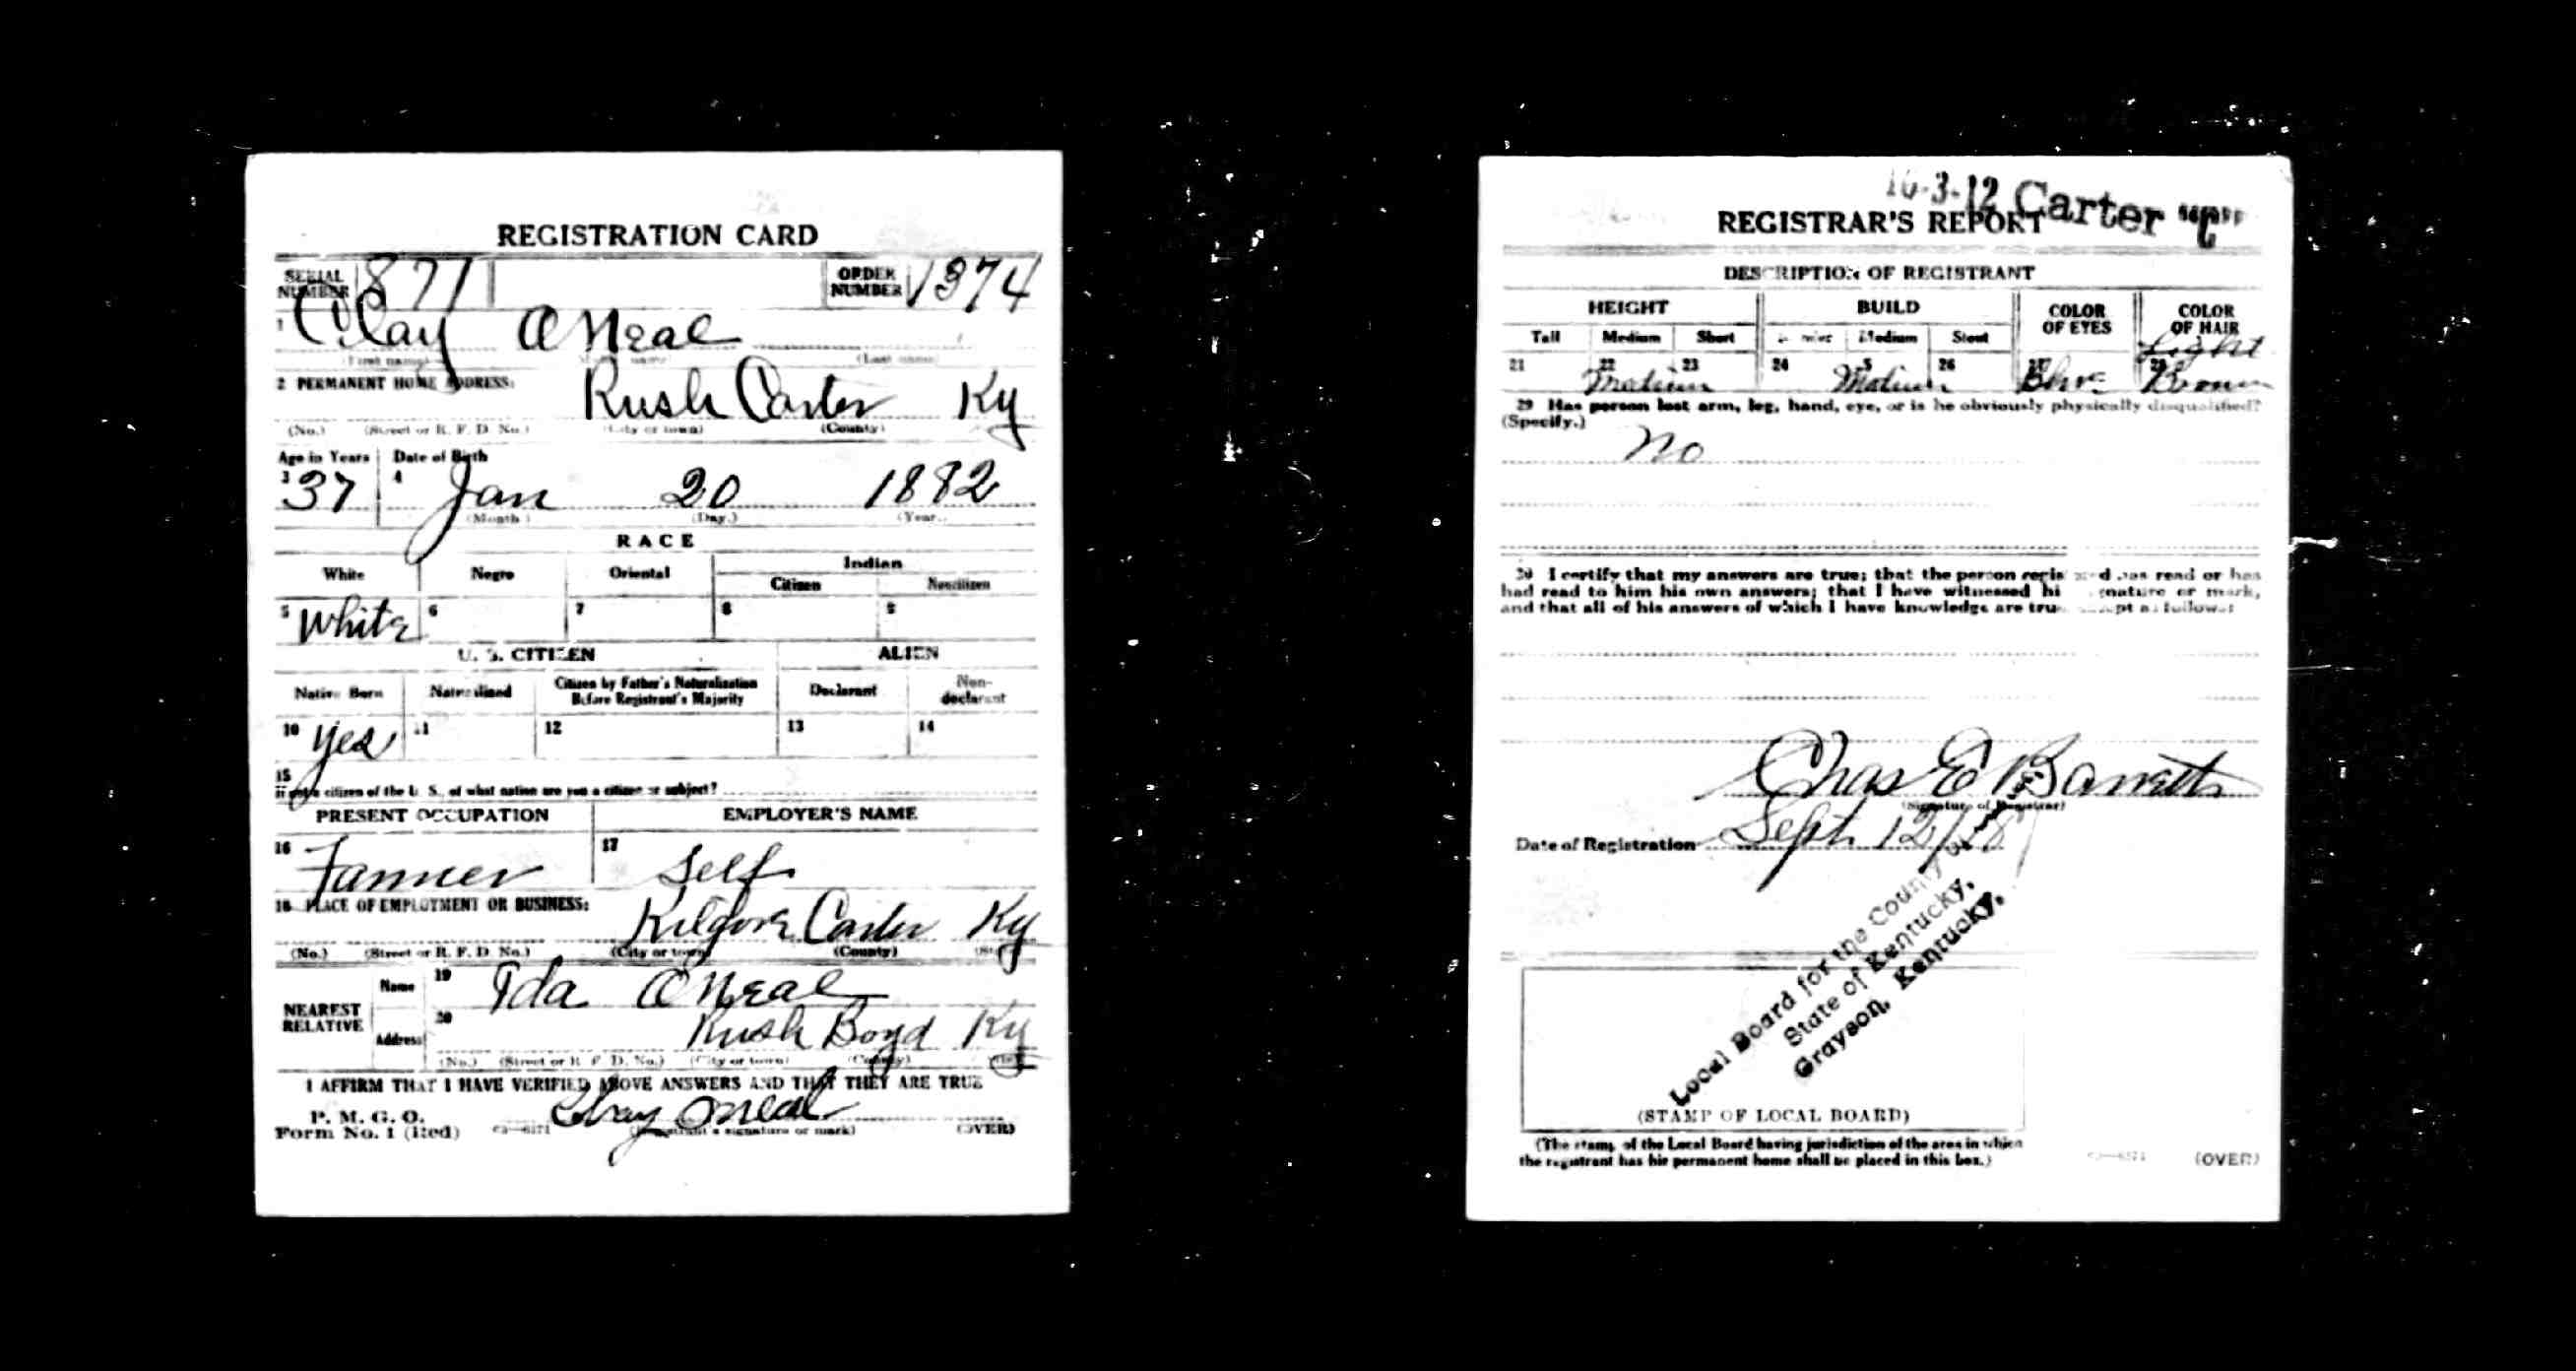 REGISTRATION CARD
SERIAL NUMBER 871 ORDER NUMBER 1374
1 Clay O'Neal
(First name) (Middle name) (Last name)
2 PERMANENT HOME ADDRESS:
Rush Carter Ky
(No.) (Street or R. F. D. No.) (City or town) (County)
Age in Years Date of Birth
3 37 4 Jan 20 1882
(Month) (Day.) (Year.)
RACE
White Negro Oriental Indian
Citizen Noncitizen
5 White 6 7 8 9
U. S. CITIZEN ALIEN
Native Born Naturalized Citizen by Father's Naturalization Before Registrant's Majority Declarant Non-declarant
10 yes 11 12 13 14
15
If not a citizen of the U. S., of what nation are you a citizen or subject?
PRESENT OCCUPATION EMPLOYER'S NAME
16 Farmer 17 Self
18 PLACE OF EMPLOYMENT OR BUSINESS:
Kilgore Carter Ky
(No.) (Street or R. F. D. No.) (City or town) (County) (State)
NEAREST RELATIVE Name 19 Ida O'Neal
Address 20 Rush Boyd Ky
(No.) (Street or R. F. D. No.) (City or town) (County) (State)
I AFFIRM THAT I HAVE VERIFIED ABOVE ANSWERS AND THAT THEY ARE TRUE
P. M. G. O.
Form No. 1 (Red) 03—6171 Clay Oneal
(Registrant's signature or mark) (OVER)
16-3-12 Carter "C"
REGISTRAR'S REPORT
DESCRIPTION OF REGISTRANT
HEIGHT BUILD COLOR OF EYES COLOR OF HAIR
Tall Medium Short Slender Medium Stout
Light
21 22 Medium 23 24 25 Medium 26 27 Blue 28 Brown
29 Has person lost arm, leg, hand, eye, or is he obviously physically disqualified?
(Specify.)
No
30 I certify that my answers are true; that the person registered has read or has
had read to him his own answers; that I have witnessed his signature or mark,
and that all of his answers of which I have knowledge are true, except as follows:
Chas E Barrett
(Signature of Registrar)
Date of Registration Sept 12/18
Local Board for the County of
State of Kentucky,
Grayson, Kentucky.
(STAMP OF LOCAL BOARD)
(The stamp of the Local Board having jurisdiction of the area in which
the registrant has his permanent home shall be placed in this box.)
03—6171 (OVER)